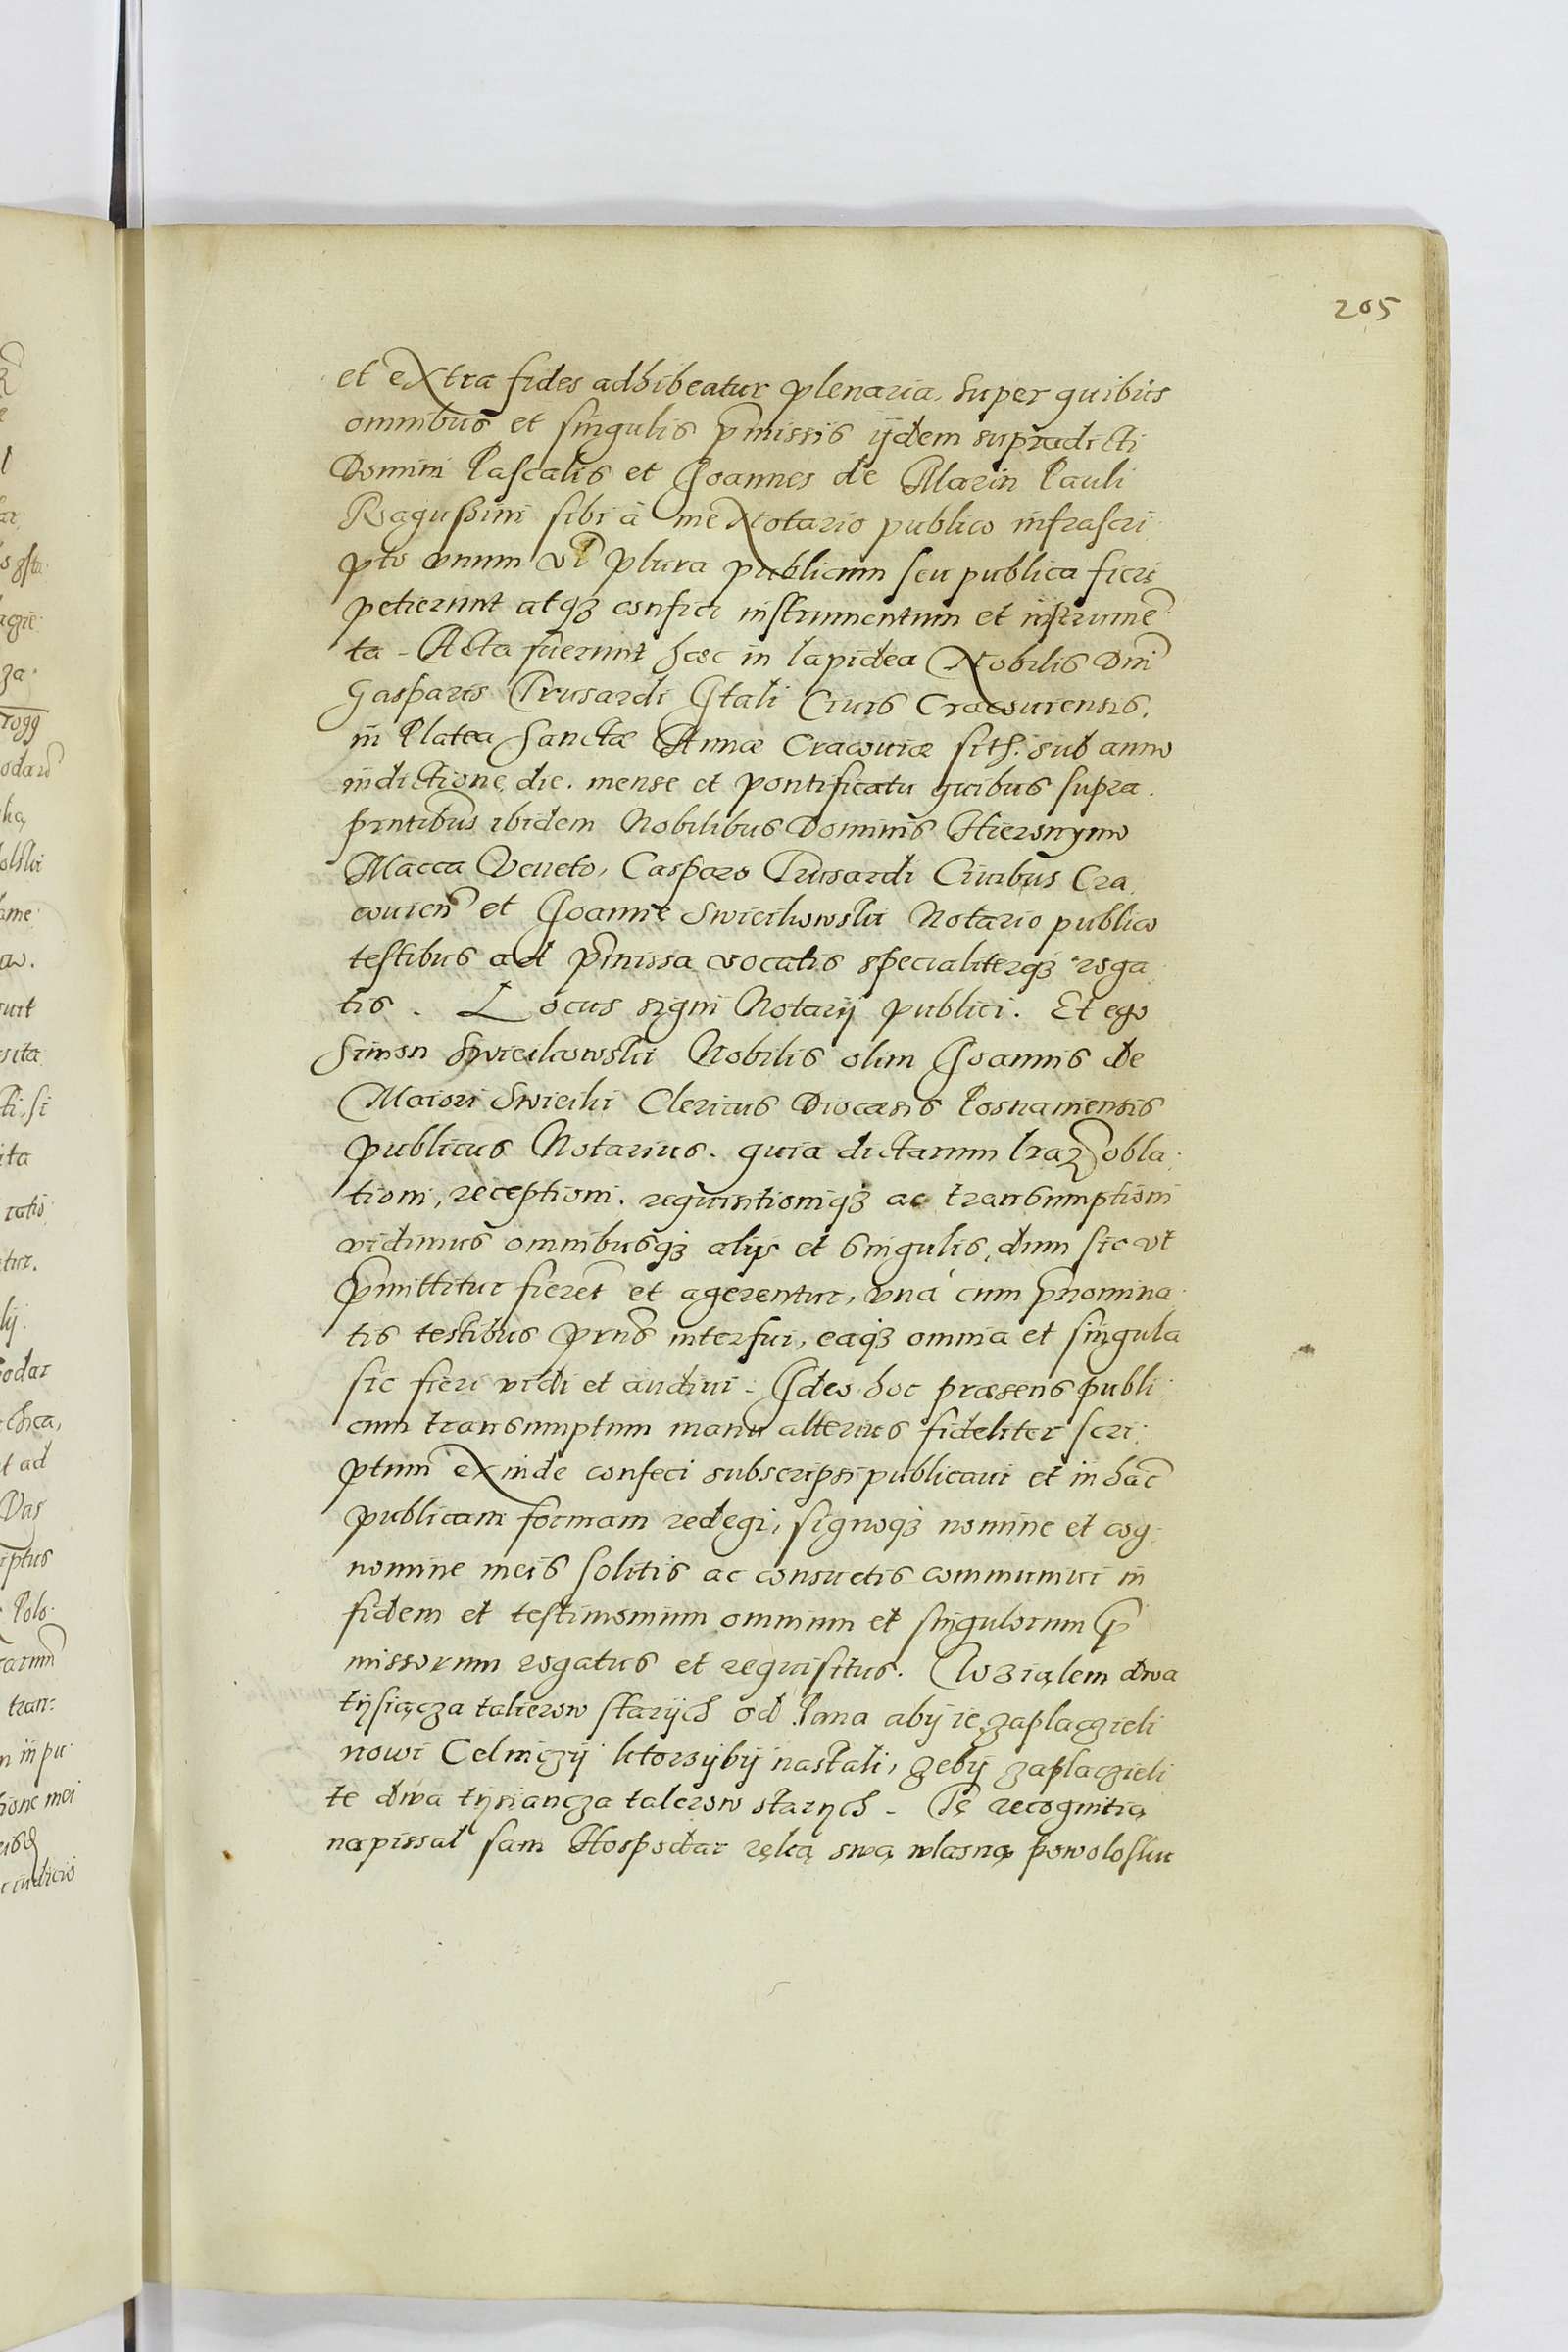 205
et extra fides adhibeatur plenaria, super quibus
omnibus et singulis p̃missis ijdem supradicti
Domini Pascalis et Joannes de Marin Pauli
Ragussini sibi à me Notario publico infrascri
pto vnum vl̃ plura publicum seu publica fieri
petierunt atqȝ confici instrumentum et instrumẽ
ta - Acta fuerunt hæc in lapidea Nobilis Dn̄i
Gasparis Trusardi Itali Ciuis Cracouiensis,
in Platea Sanctæ Annæ Cracouiæ sith. sub anno
indictione, die. mense et pontificatu quibus supra.
pn̄tibus ibidem Nobilibus Dominis Hieronymo
Macca Veneto, Casparo Trusardi Ciuibus Cra
couień et Joanne Swiecikowski Notario publico
testibus ad p̃missa vocatis specialiterqȝ roga
tis. Locus signi Notarij publici. Et ego
Simon Swiecikowski Nobilis olim Joannis de
Maiori Swieciki Clericus Diocæsis Posnaniensis
publicus Notarius. quia dictarum l̃raꝝ obla
tioni, receptioni. requisitioniqȝ ac transumptioni
vidimus omnibusqȝ alijs et singulis, dum sic vt
p̃mittitur fierẽt et agerentur, vnà cum p̃nomina
tis testibus pr̃ns interfui, eaqȝ omnia et singula
sic fieri vidi et audiui - Ideo hoc præsens publi
cum transumptum manu alterius fideliter scri
ptum exinde confeci subscripsi publicaui et in hãc
publicam formam redegi, signoqȝ nomine et cog
nomine meis solitis ac consuetis communiui in
fidem et testimonium omnium et singulorum p̃
missorum rogatus et requisitus. Wziąlem dwa
tysięcza talierow starijch od Pana abij ie zaplaczieli
nowi Celniczij ktorsijbij nastali, zebij zaplaczieli
te dwa tijsiancza talerow starych - Tę recognitią
napissal sam Hospodar ręką swą wlasną powolosku